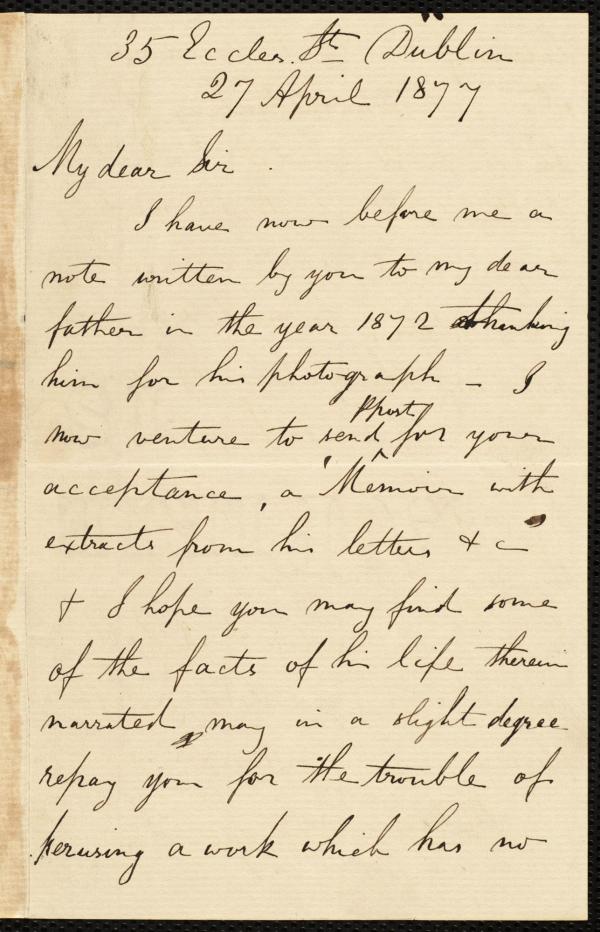 35 Eccles. St Dublin
27 April 1877
My dear Sir.
I have now before me a
note written by you to my dear
father in the year 1872 thanking
him for his photograph - I
post
now venture to send for your
acceptance, a 'Memoir with
extracts from his letters & c
& I hope you may find some
of the facts of his life therein
narrated, may in a slight degree
repay you for the trouble of
perusing a work which has no